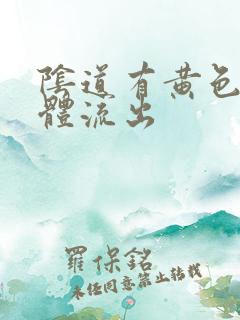 陰道有黄色
體流出
羅保銘
未经同意禁止转载